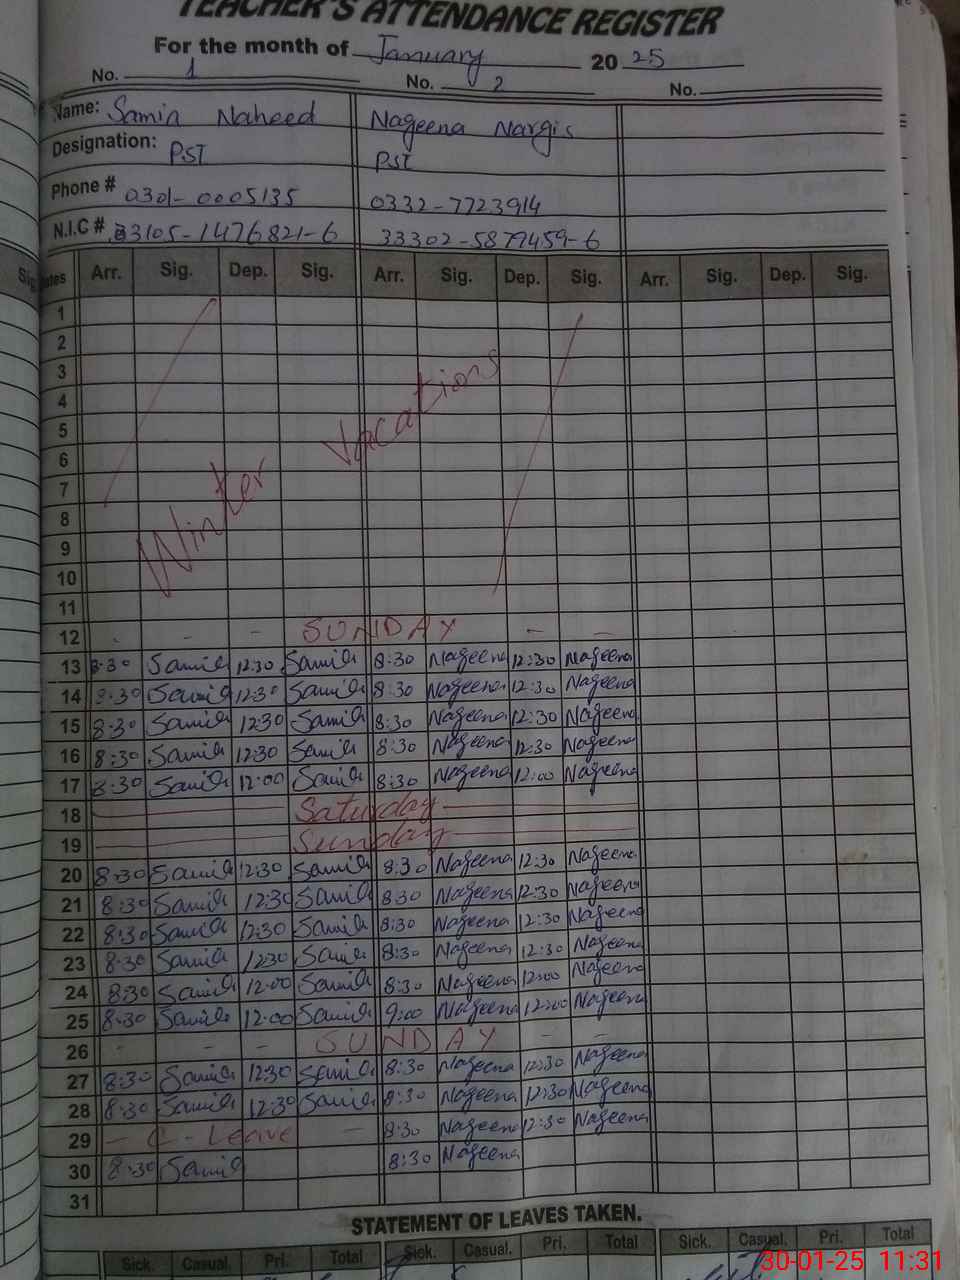 TEACHER'S ATTENDANCE REGISTER
For the month of January 2025
No. 1 No. 2 No.
Name: Samia Naheed Nageena Nargis
Designation: PST PST
Phone # 0301-0005135 0332-7723914
N.I.C # 33105-1476821-6 33302-5879459-6
Dates Arr. Sig. Dep. Sig. Arr. Sig. Dep. Sig. Arr. Sig. Dep. Sig.
1
2
3
4
5
6
7
8
9
10
11
Winter Vacations
12 - - SUNDAY - -
13 8:30 Samia 12:30 Samia 8:30 Nageena 12:30 Nageena
14 8:30 Samia 12:30 Samia 8:30 Nageena 12:30 Nageena
15 8:30 Samia 12:30 Samia 8:30 Nageena 12:30 Nageena
16 8:30 Samia 12:30 Samia 8:30 Nageena 12:30 Nageena
17 8:30 Samia 12:00 Samia 8:30 Nageena 12:00 Nageena
18 Saturday
19 Sunday
20 8:30 Samia 12:30 Samia 8:30 Nageena 12:30 Nageena
21 8:30 Samia 12:30 Samia 8:30 Nageena 12:30 Nageena
22 8:30 Samia 12:30 Samia 8:30 Nageena 12:30 Nageena
23 8:30 Samia 1230 Samia 8:30 Nageena 12:30 Nageena
24 8:30 Samia 12:00 Samia 8:30 Nageena 12:00 Nageena
25 8:30 Samia 12:00 Samia 9:00 Nageena 12:00 Nageena
26 - - - SUNDAY - -
27 8:30 Samia 1230 Samia 8:30 Nageena 12:30 Nageena
28 8:30 Samia 12:30 Samia 8:30 Nageena 12:30 Nageena
29 - C-Leave - 8:30 Nageena 12:30 Nageena
30 8:30 Samia 8:30 Nageena
31
STATEMENT OF LEAVES TAKEN.
Sick. Casual. Pri. Total Sick. Casual. Pri. Total Sick. Casual. Pri. Total
30-01-25 11:31